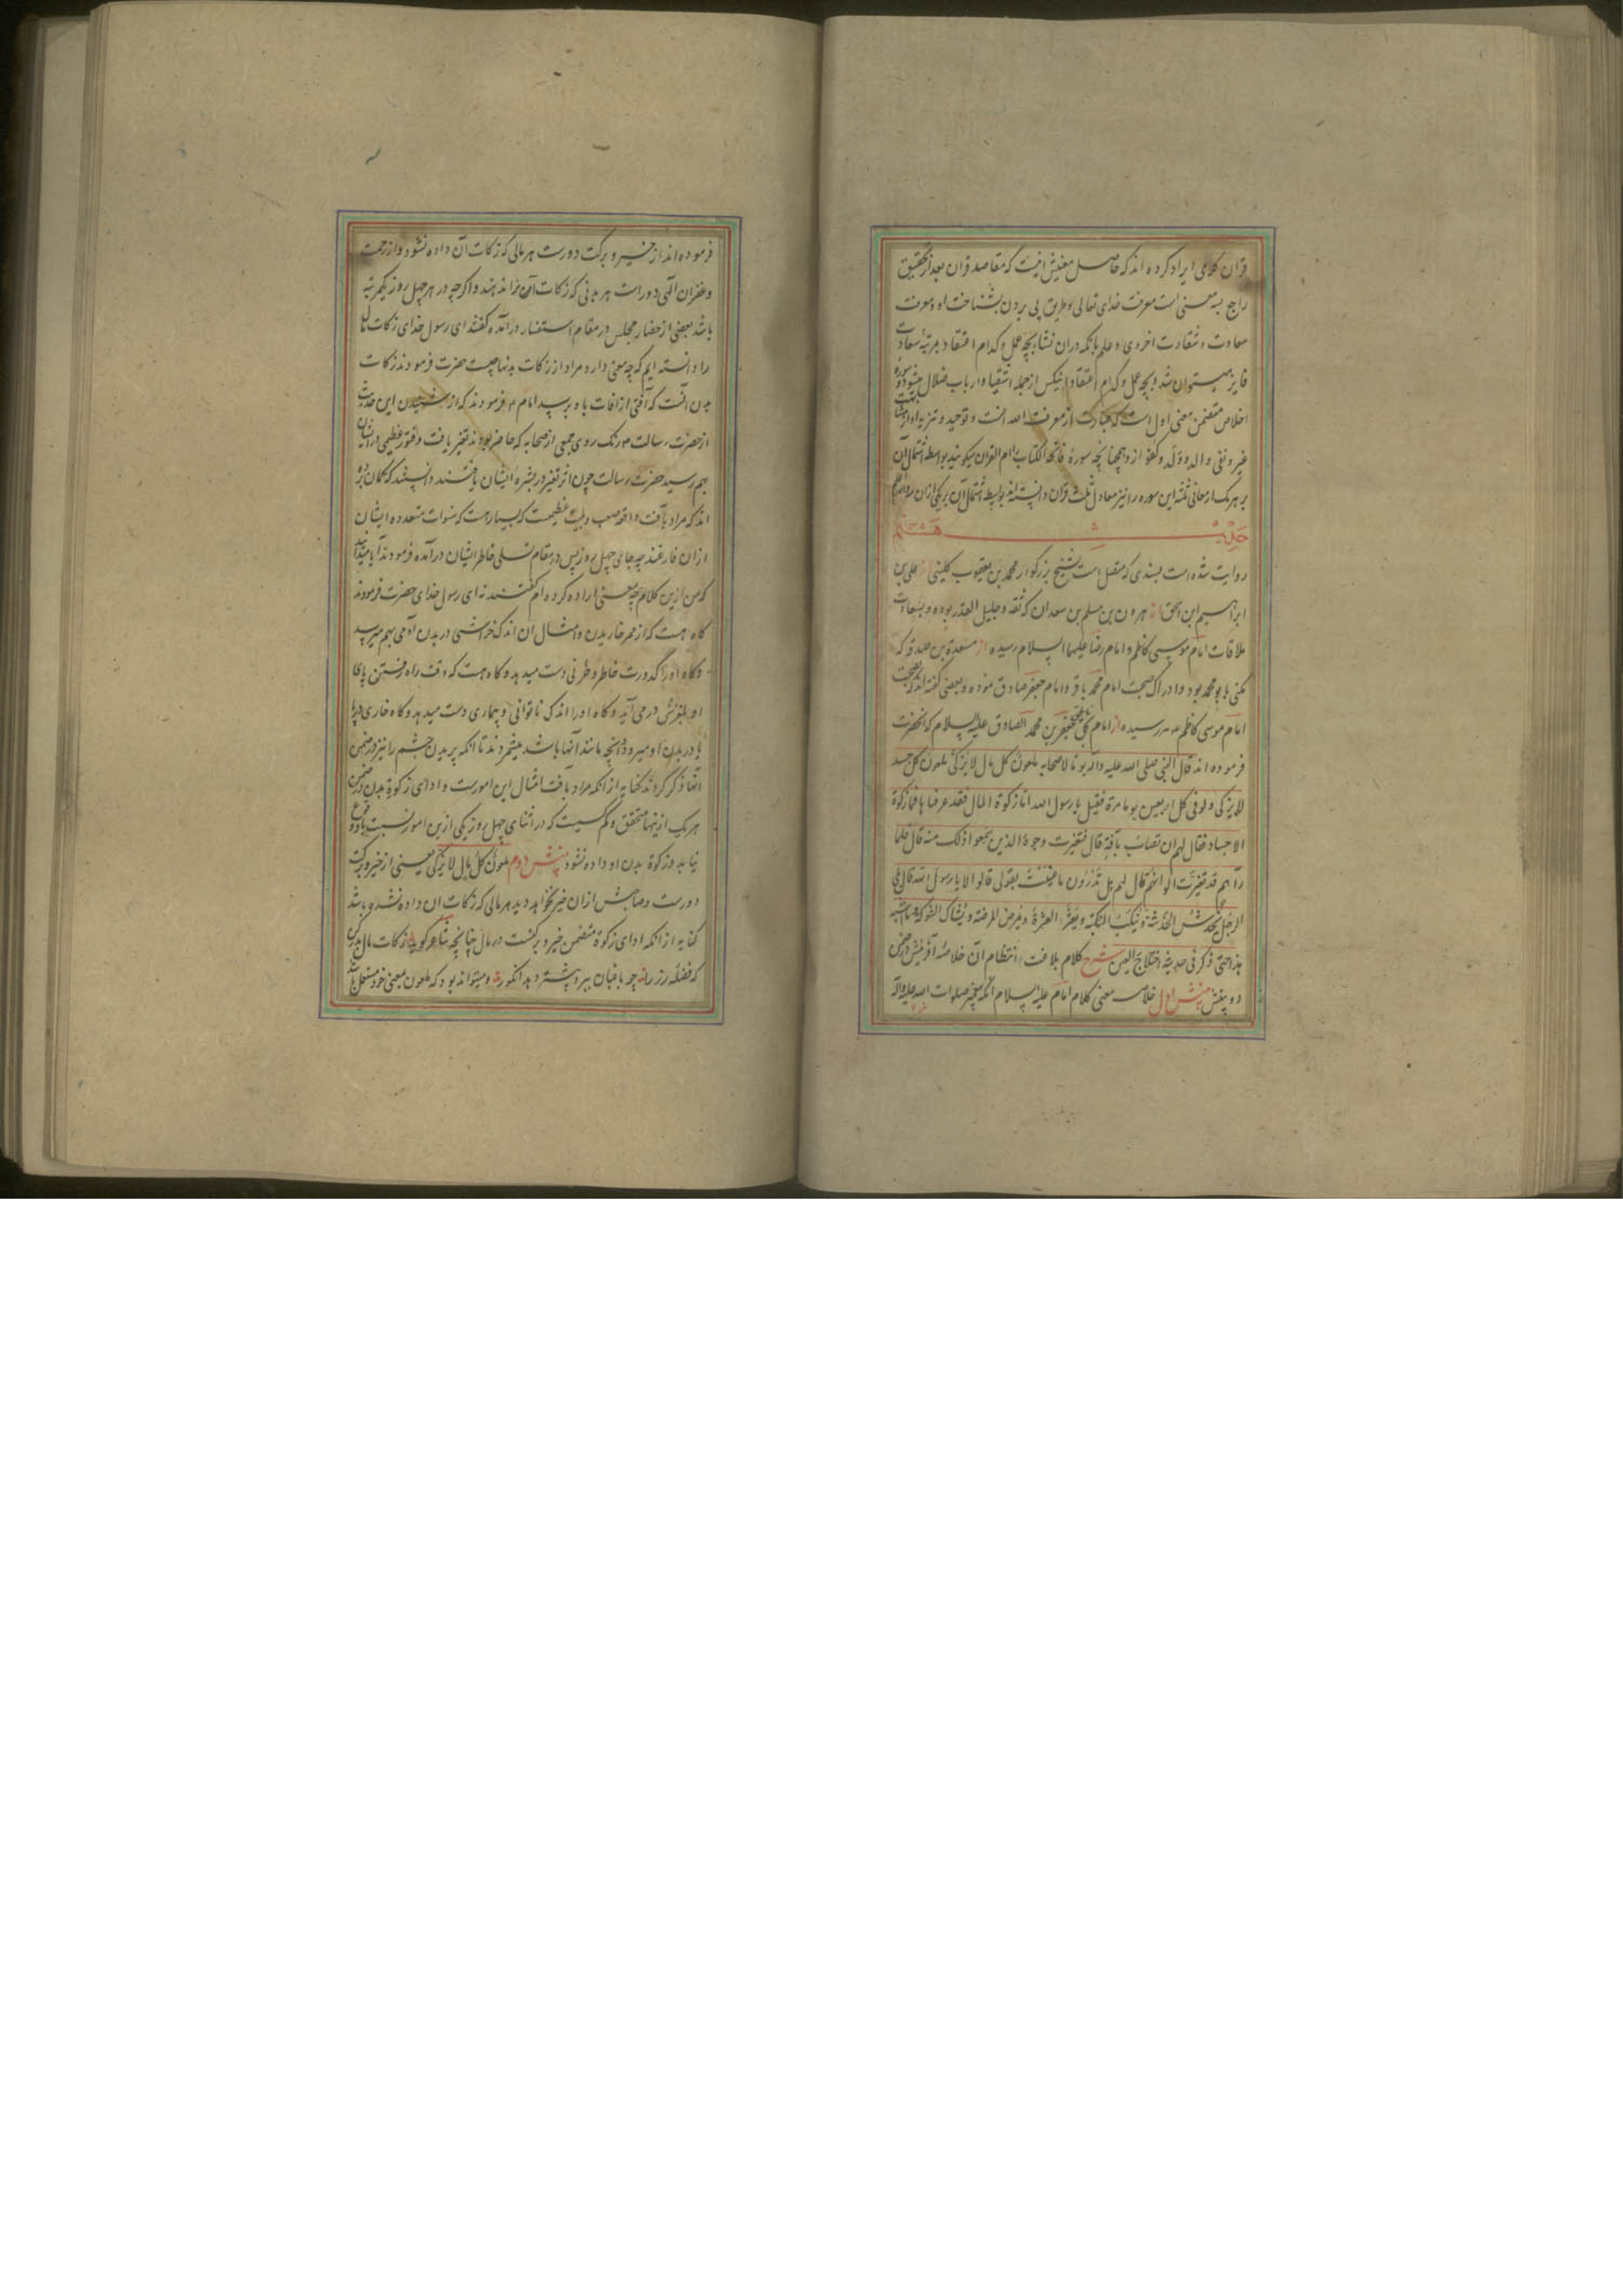 قران کلامی ایراد کرده اند که حاصل معنیش اینست که مقاصد قران بعد از تحقیق
راجع بسه معنی است معرفت خدای تعالی و طریق پی بردن بشناخت او و معرفت
سعادت و شقاوت اخروی و علم بانکه دران نشا بچه عمل و کدام اعتقاد بمرتبه سعادت
فایز میتوان شد و بچه عمل و کدام اعتقاد انیکس از جمله اشقیا و ارباب ضلال میشود و سوره
اخلاص متضمن معنی اول است که عبارت از معرفت الله است و توحید و تنزیه او از مشابهت
غیر و نفی والد و ولد و کفو ازو همچنانچه سوره فاتحة الکتاب را ام القران میکویند بواسطه اشتمال آن
بر هریک از معانی ثلثه این سوره را نیز معادل ثلث قران دانسته اند بواسطه اشتمال آن بر یکی ازان
حدیث هشتم
روایت شده است بسندی که متصل است بشیخ بزرکوار محمد بن یعقوب کلینی از علی بن
ابراهیم از هرون بن مسلم بن سعدان که ثقه و جلیل القدر بوده و بسعادت
ملاقات امام موسی کاظم و امام رضا علیهما السلام رسیده از مسعدة بن صدقه که
مکنی بابو محمد بود و ادراک صحبت امام محمد باقر و امام جعفر صادق نموده و بعضی گفته اند که بصحبت
امام موسی کاظم ع م رسیده از امام بحق جعفر بن محمد الصادق علیه السلام که انحضرت
فرموده اند قال النبی صلی الله علیه واله یوما لاصحابه ملعون کل مال لا یزکی ملعون کل جسد
لا یزکی و لو فی کل اربعین یوما مرة فقیل یا رسول الله اما زکوة المال فقد عرفناها فما زکوة
الاجساد فقال لهم ان تصاب بآفة قال فتغیرت وجوه الذین سمعوا ذلک منه قال فلما
رآهم قد تغیرت الوانهم قال لهم هل تدرون ما عنیت بقولی قالوا لا یا رسول الله قال بلی
الرجل یخدش الخدشة و ینکب النکبة و یعثر العثرة و یمرض المرضة و یشاک الشوکة و ما اشبه
هذا حتی ذکر فی حدیثه اختلاج العین شرح کلام بلاغت انتظام آن خلاصه آفرینش در ضمن
دو بینش بینش اول خلاصه معنی کلام امام علیه السلام آنکه پیغمبر صلوات الله علیه واله
فرموده اند از خیر و برکت دورست هر مالی که زکات آن داده نشود و از رحمت
و غفران الهی دور است هر بدنی که زکات آن نداده نشد و اکرچه در هر چهل روز یکمرتبه
باشد بعضی از حضار مجلس در مقام استفسار درآمده کفتند ای رسول خدای زکات مال
را دانسته ایم که چه معنی دارد مراد از زکات بدنها چیست حضرت فرمودند زکات
بدن آنست که آفتی از افات باو برسد امام ع م فرمودند که از شنیدن این حدیث
از حضرت رسالت م رنک روی جمعی از صحابه که حاضر بودند تغیر یافت و فتور عظیمی در ایشان
بهم رسید حضرت رسالت چون اثر تغیر در بشره ایشان یافتند دانستند که کمان برده
اند که مراد بآفت واقعه صعب و بلیه عظیمست که بسیار هست که سنوات متعدده ایشان
ازان فارغند چه جای چهل روز پس در مقام تسلی خاطر ایشان درآمده فرمودند آیا میدانید
که من ازین کلام چه معنی اراده کرده ام کفتند نه ای رسول خدای حضرت فرمودند
کاه هست که از ممر خاریدن و امثال ان اندک خراشی در بدن آدمی بهم میرسد
و کاه او را کدورت خاطر و حزنی دست میدهد و کاه هست که وقت راه رفتن پای
او بلغزش در می آید و کاه او را اندک ناتوانی و بیماری دست میدهد و کاه خاری در پا
یا در بدن او میرود و انچه مانند آنها باشد میشمردند تا انکه پریدن چشم را نیز در ضمن
آنها ذکر کردند کنایه از انکه مراد بآفت امثال این امورست و ادای زکوة بدن در ضمن
هریک از ینها متحقق و کم کسیت که در اثنای چهل روز یکی ازین امور نسبت باو وقوع
نیابد و زکوة بدن او داده نشود بینش دوم ملعون کل مال لا یزکی یعنی از خیر و برکت
دورست و صاحبش ازان خیر نخواهد دید هر مالی که زکات ان داده نشده باشد
کنایه از انکه ادای زکوة متضمن خیر و برکتست در مال چنانچه شاعر کوید زکات مال بدر کن
که فضله رز را چو باغبان ببرد بیشتر دهد انکور و میتواند بود که ملعون بمعنی خود مستعمل باشد